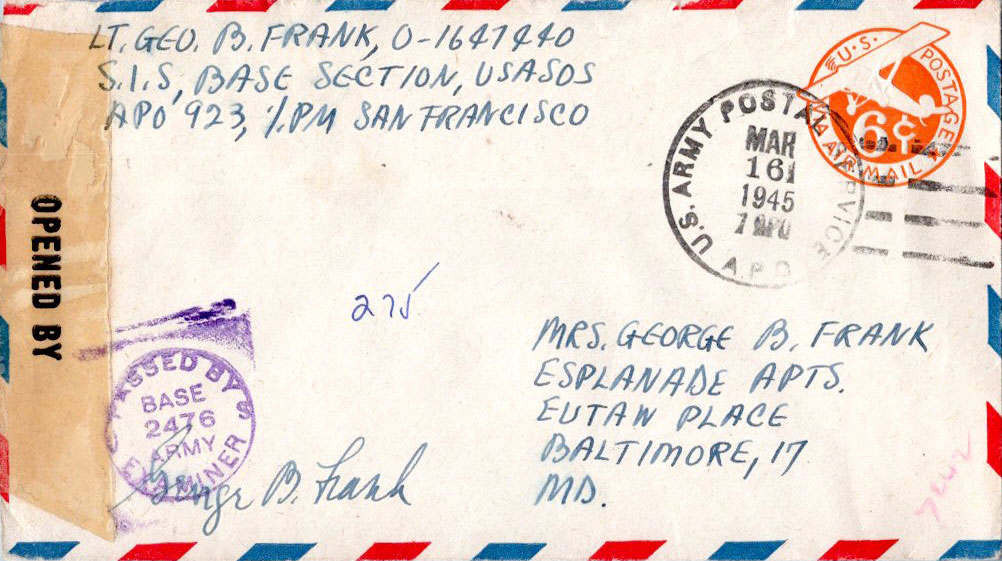 LT. GEO. B. FRANK, O-1641440
S.I.S, BASE SECTION, USASOS
APO 923, %PM SAN FRANCISCO
U.S. POSTAGE
6¢
VIA AIR MAIL
U.S. ARMY POSTAL SERVICE
MAR
161
1945
APO
A.P.O.
OPENED BY
275
PASSED BY
BASE
2476
ARMY
EXAMINER
George B. Frank
MRS. GEORGE B. FRANK
ESPLANADE APTS.
EUTAW PLACE
BALTIMORE, 17
MD.